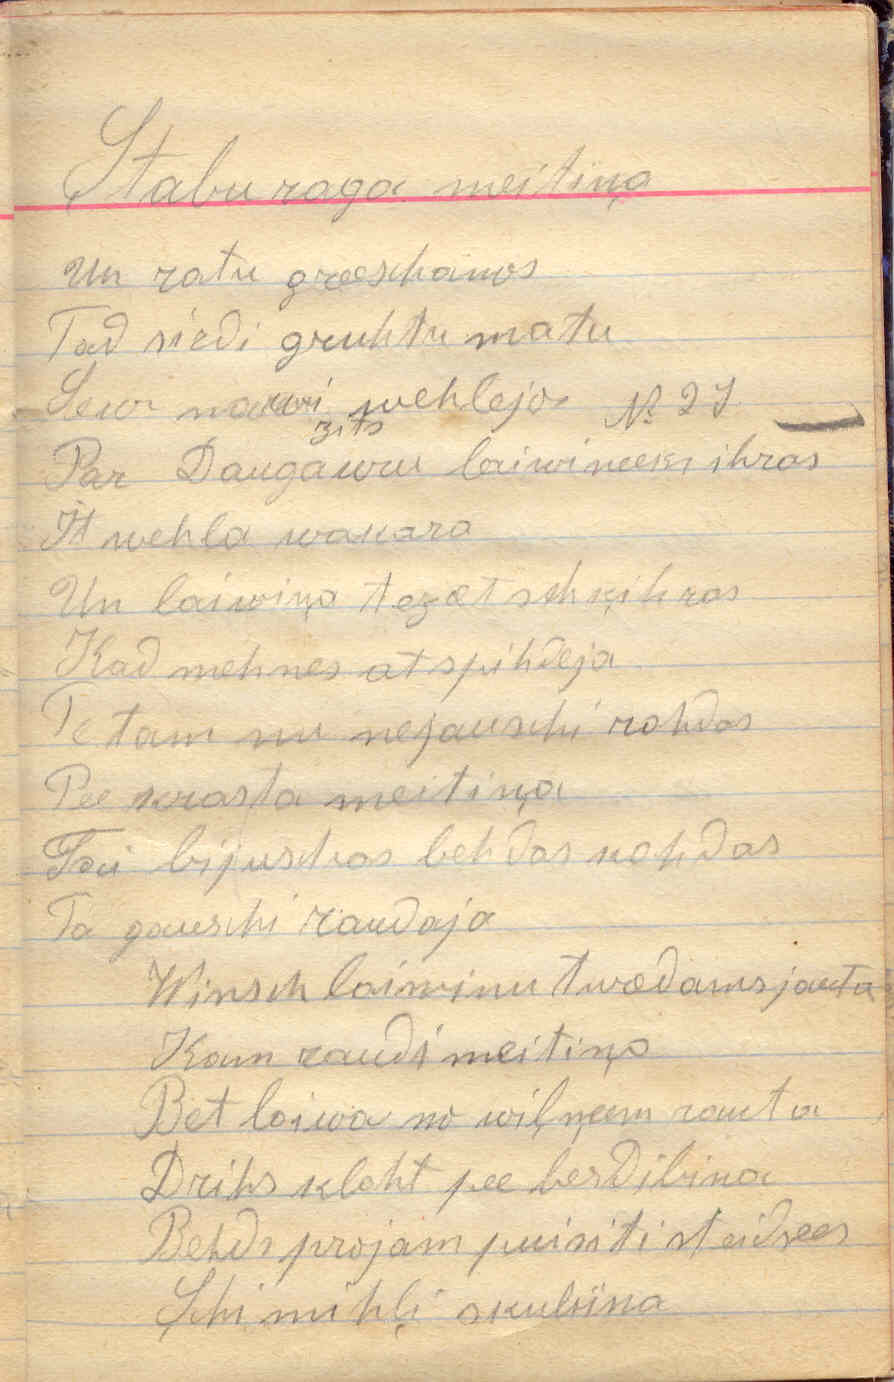 Staburaga meitiņa
Un ratu greeschanos
Tad sirdi gruhtu matu
Sew nawi wehlejos № 27
zits
Par Daugawu laiwineeks ihras
It wehla wakara
Un laiwiņa tezet schķihras
Kad mehnes atspihdeja
Te tam nu nejauschi rohdas
Pee krasta meitiņa
Tai bijuschas behdas kohdas
Ta gauschi raudaja
Winsch laiwinu twædams jauta
Kam raudi meitiņa
Bet laiwa no wiļņeem rauta
Drihs kleht pee besdibina
Behds projam puisiti steidsees
Schi mihļi skubina